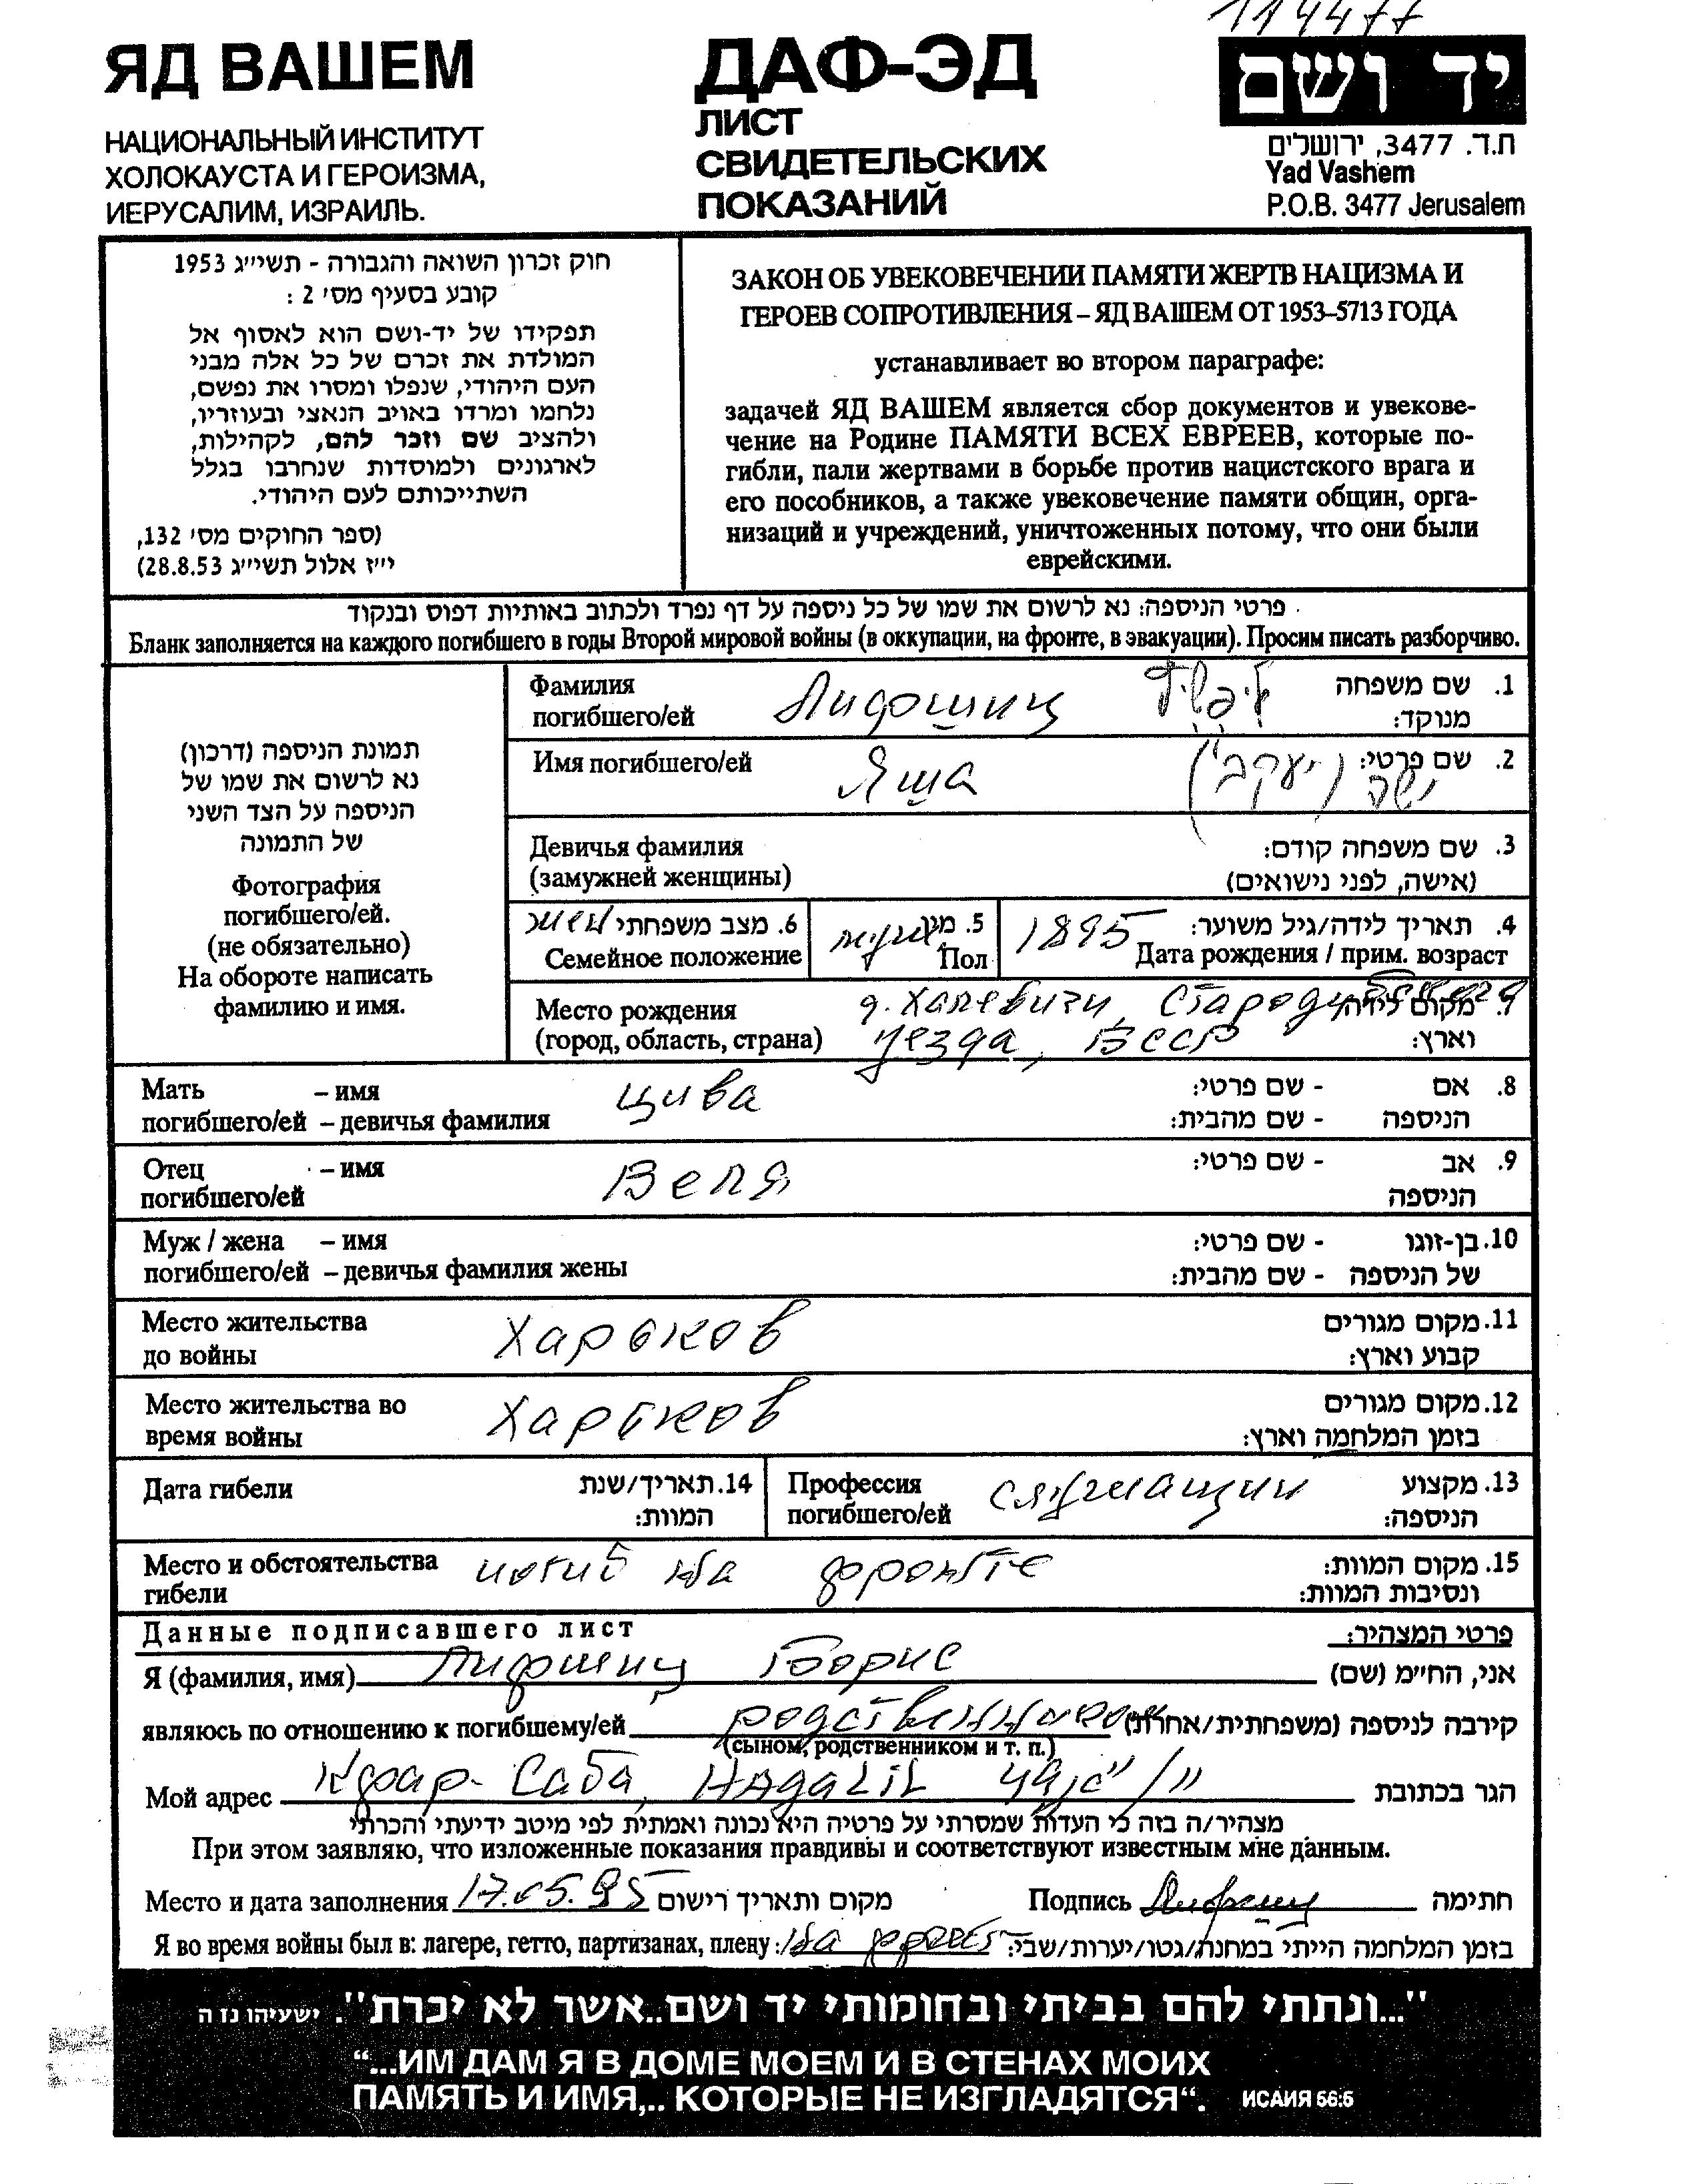 114477
ЯД ВАШЕМ
НАЦИОНАЛЬНЫЙ ИНСТИТУТ
ХОЛОКАУСТА И ГЕРОИЗМА,
ИЕРУСАЛИМ, ИЗРАИЛЬ.
ДАФ-ЭД
ЛИСТ
СВИДЕТЕЛЬСКИХ
ПОКАЗАНИЙ
יד ושם
ת.ד. 3477, ירושלים
Yad Vashem
P.O.B. 3477 Jerusalem
חוק זכרון השואה והגבורה - תשי״ג 1953
קובע בסעיף מס׳ 2 :
תפקידו של יד-ושם הוא לאסוף אל
המולדת את זכרם של כל אלה מבני
העם היהודי, שנפלו ומסרו את נפשם,
נלחמו ומרדו באויב הנאצי ובעוזריו,
ולהציב שם וזכר להם, לקהילות,
לארגונים ולמוסדות שנחרבו בגלל
השתייכותם לעם היהודי.
(ספר החוקים מס׳ 132,
י״ז אלול תשי״ג 28.8.53)
ЗАКОН ОБ УВЕКОВЕЧЕНИИ ПАМЯТИ ЖЕРТВ НАЦИЗМА И
ГЕРОЕВ СОПРОТИВЛЕНИЯ – ЯД ВАШЕМ ОТ 1953–5713 ГОДА
устанавливает во втором параграфе:
задачей ЯД ВАШЕМ является сбор документов и увекове-
чение на Родине ПАМЯТИ ВСЕХ ЕВРЕЕВ, которые по-
гибли, пали жертвами в борьбе против нацистского врага и
его пособников, а также увековечение памяти общин, орга-
низаций и учреждений, уничтоженных потому, что они были
еврейскими.
פרטי הניספה: נא לרשום את שמו של כל ניספה על דף נפרד ולכתוב באותיות דפוס ובנקוד
Бланк заполняется на каждого погибшего в годы Второй мировой войны (в оккупации, на фронте, в эвакуации). Просим писать разборчиво.
תמונת הניספה (דרכון)
נא לרשום את שמו של
הניספה על הצד השני
של התמונה
Фотография
погибшего/ей.
(не обязательно)
На обороте написать
фамилию и имя.
Фамилия
погибшего/ей Лифшиц
1. שם משפחה
מנוקד:
Имя погибшего/ей Яша ישה (יעקב)
2. שם פרטי:
Девичья фамилия
(замужней женщины)
3. שם משפחה קודם:
(אישה, לפני נישואים)
6. מצב משפחתי жен
Семейное положение
5. מין
Пол
4. תאריך לידה/גיל משוער: 1895
Дата рождения / прим. возраст
Место рождения д. Халевичи, Стародубского
(город, область, страна) уезда, БССР
7. מקום לידה
וארץ:
Мать – имя Цива
погибшего/ей – девичья фамилия
8. אם - שם פרטי:
הניספה - שם מהבית:
Отец – имя Веля
погибшего/ей
9. אב - שם פרטי:
הניספה
Муж / жена – имя
погибшего/ей – девичья фамилия жены
10. בן-זוגו - שם פרטי:
של הניספה - שם מהבית:
Место жительства
до войны Харьков
11. מקום מגורים
קבוע וארץ:
Место жительства во
время войны Харьков
12. מקום מגורים
בזמן המלחמה וארץ:
Дата гибели
14. תאריך/שנת
המוות:
Профессия
погибшего/ей служащий
13. מקצוע
הניספה:
Место и обстоятельства погиб на фронте
гибели
15. מקום המוות:
ונסיבות המוות:
Данные подписавшего лист
פרטי המצהיר:
Я (фамилия, имя) Лифшиц Борис אני, הח״מ (שם)
являюсь по отношению к погибшему/ей родственником קירבה לניספה (משפחתית/אחרת)
(сыном, родственником и т. п.)
Мой адрес Кфар-Саба, HAgaLiL הגר בכתובת
מצהיר/ה בזה כי העדות שמסרתי על פרטיה היא נכונה ואמתית לפי מיטב ידיעתי והכרתי
При этом заявляю, что изложенные показания правдивы и соответствуют известным мне данным.
Место и дата заполнения 17.05.95 מקום ותאריך רישום Подпись Лифшиц חתימה
Я во время войны был в: лагере, гетто, партизанах, плену: на фронте בזמן המלחמה הייתי במחנה/גטו/יערות/שבי:
"...ונתתי להם בביתי ובחומותי יד ושם..אשר לא יכרת". ישעיהו נו ה
"...ИМ ДАМ Я В ДОМЕ МОЕМ И В СТЕНАХ МОИХ
ПАМЯТЬ И ИМЯ,.. КОТОРЫЕ НЕ ИЗГЛАДЯТСЯ". ИСАИЯ 56:5